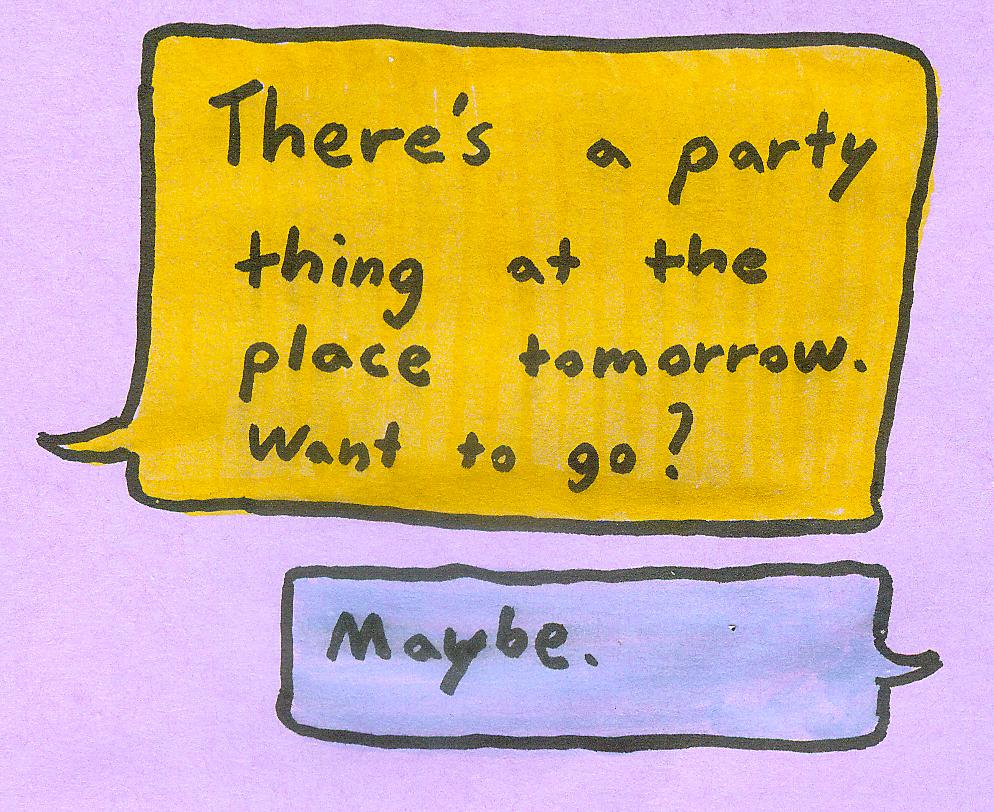 There's a party
thing at the
place tomorrow.
Want to go?
Maybe.